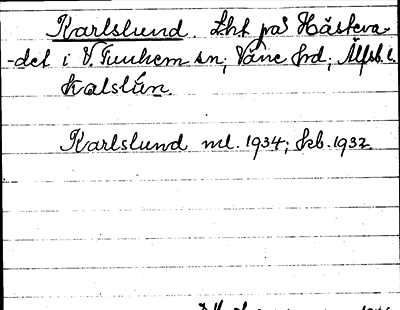 Karlslund. Lht på Hästeva-
-det i V. Tunhem sn; Väne hrd; Älfsb. l.
Kalslún.
Karlslund ml. 1934; kb. 1932.